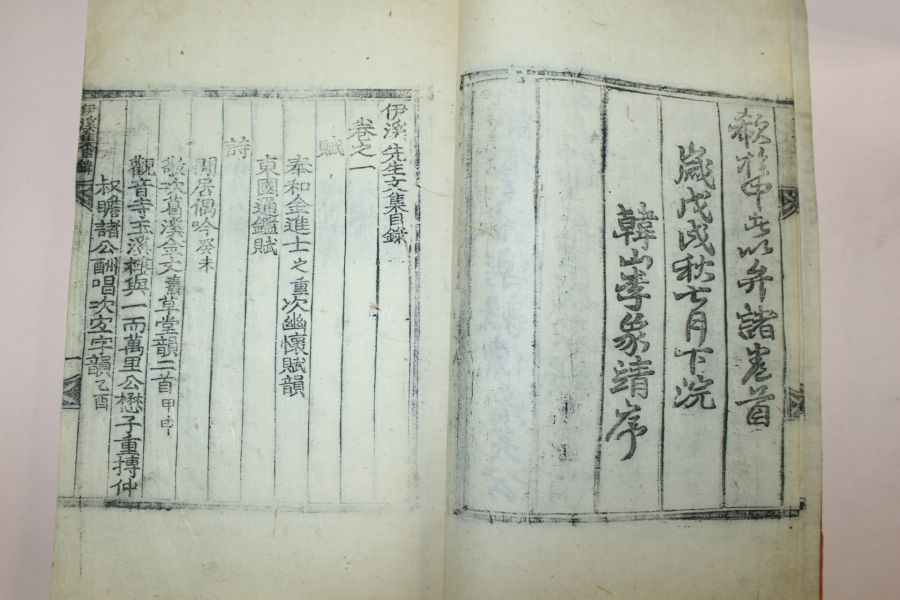 歲戊戌秋七月下浣
韓山李象靖序
伊溪先生文集目錄
卷之一
賦
奉和金進士之重次幽懷賦韻
東國通鑑賦
詩
閒居偶吟癸未
敬次葛溪金丈草堂韻二首甲申
觀音寺玉溪與一而萬里公懋子重搏仲
叔瞻諸公酬唱次安字韻乙酉
一